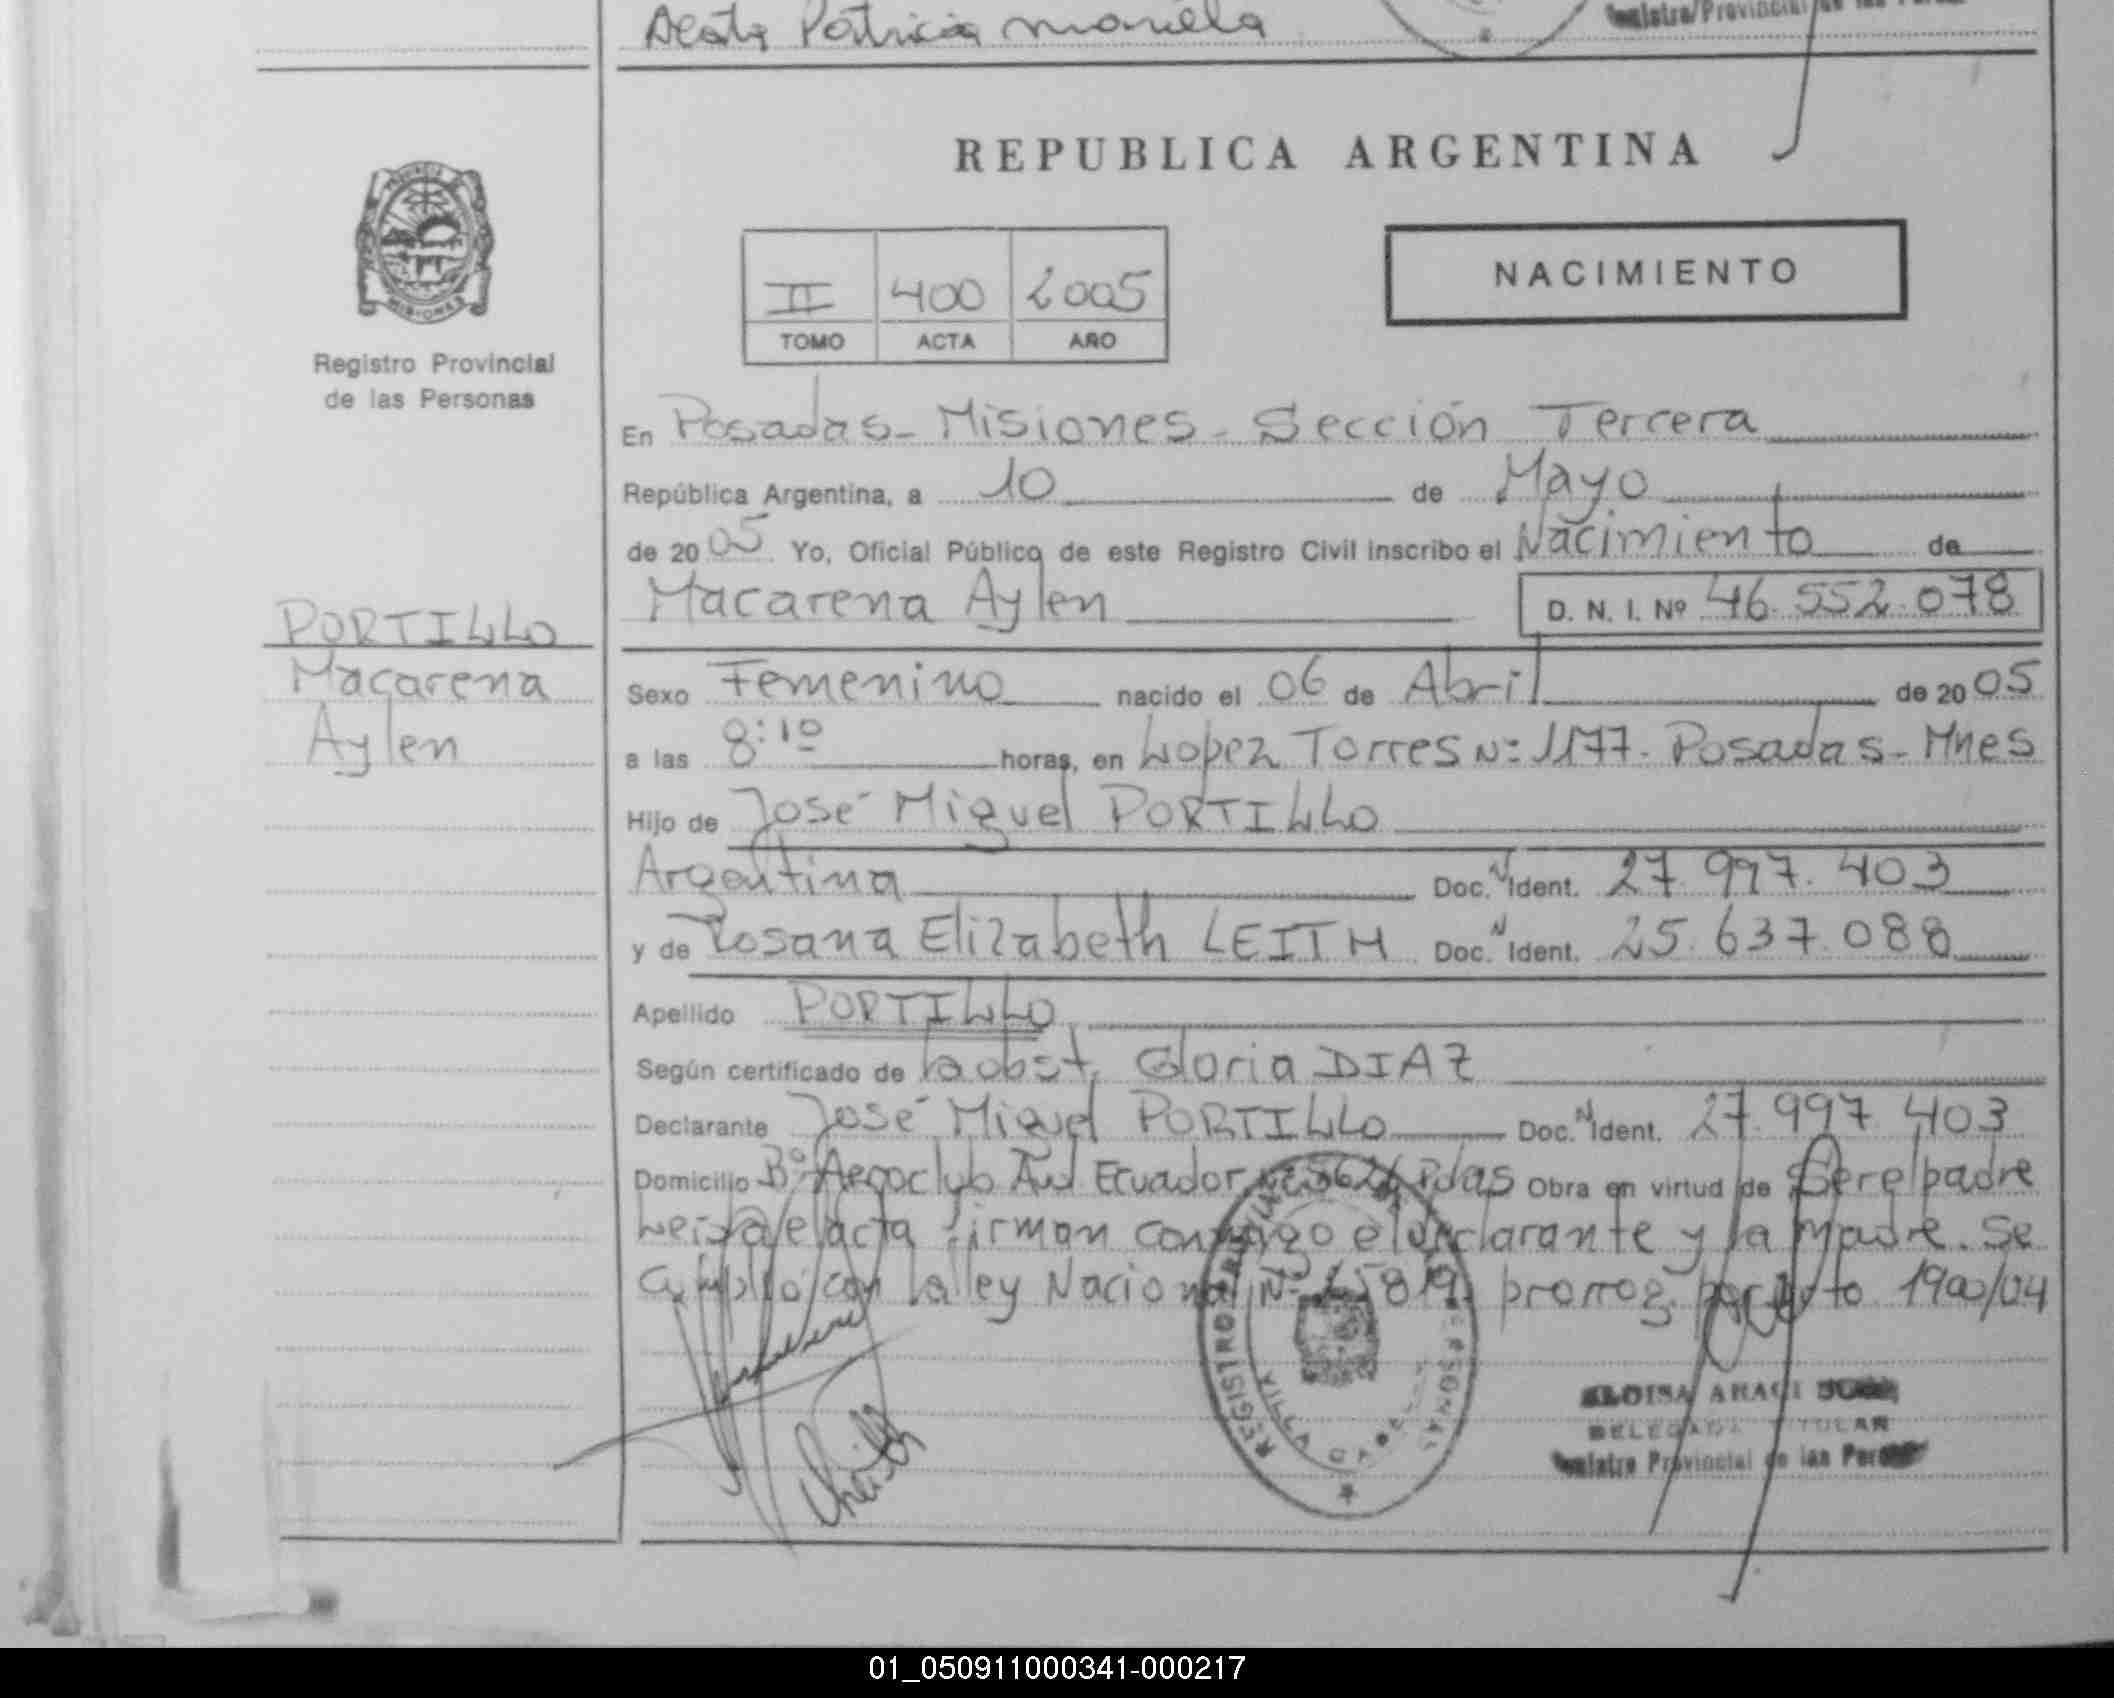 Patricia Mariela
REPUBLICA ARGENTINA
NACIMIENTO
II 400 2005
TOMO ACTA AÑO
Registro Provincial
de las Personas
En Posadas - Misiones - Sección Tercera
República Argentina, a 10 de Mayo
de 2005 Yo, Oficial Público de este Registro Civil inscribo el Nacimiento de
Macarena Aylen D. N. I. Nº 46.552.078
PORTILLO
Macarena
Aylen
Sexo Femenino nacido el 06 de Abril de 2005
a las 8:10 horas, en Lopez Torres Nº 1177. Posadas - Mnes
Hijo de José Miguel PORTILLO
Argentina Doc. N Ident. 27.997.403
y de Rosana Elizabeth LEITH Doc. N Ident. 25.637.088
Apellido PORTILLO
Según certificado de la obst. Gloria DIAZ
Declarante José Miguel PORTILLO Doc. N Ident. 27.997.403
Domicilio Bº Aeroclub Ecuador Pdas Obra en virtud de Ser el padre
Leida el acta firman conmigo el declarante y la madre. Se
cumplió con la ley Nacional Nº prorrog. por 1900/04
REGISTRO
VILLA CABELLO
ARACI
DELEGADA TITULAR
Registro Provincial de las
01_050911000341-000217